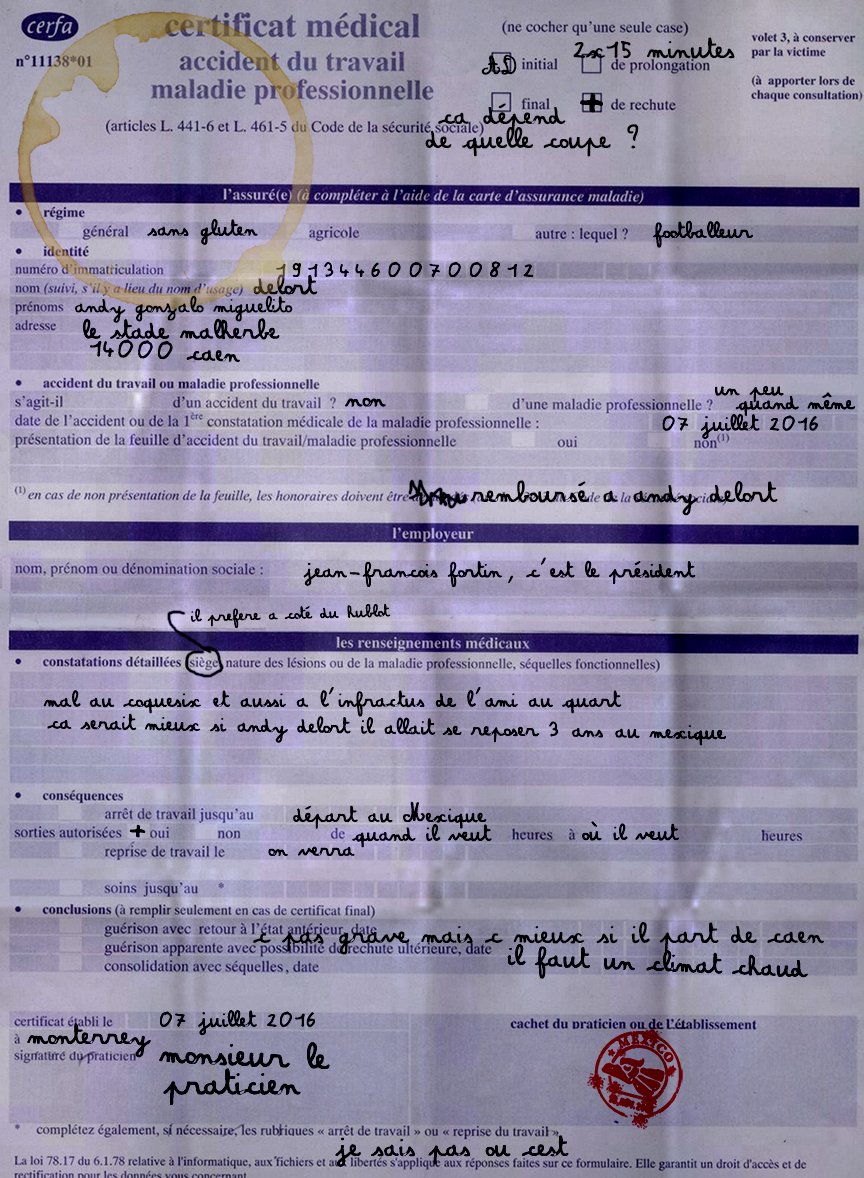 cerfa
n°11138*01
certificat médical
accident du travail
maladie professionnelle
(articles L. 441-6 et L. 461-5 du Code de la sécurité sociale)
(ne cocher qu'une seule case)
2x15 minutes
AD initial de prolongation
final de rechute
ca dépend
de quelle coupe ?
volet 3, à conserver
par la victime
(à apporter lors de
chaque consultation)
l'assuré(e) (à compléter à l'aide de la carte d'assurance maladie)
• régime
général sans gluten agricole autre : lequel ? footballeur
• identité
numéro d'immatriculation 191344600700812
nom (suivi, s'il y a lieu du nom d'usage) delort
prénoms andy gonzalo miguelito
adresse le stade malherbe
14000 caen
• accident du travail ou maladie professionnelle
s'agit-il d'un accident du travail ? non d'une maladie professionnelle ? un peu quand même
date de l'accident ou de la 1ère constatation médicale de la maladie professionnelle : 07 juillet 2016
présentation de la feuille d'accident du travail/maladie professionnelle oui non(1)
(1) en cas de non présentation de la feuille, les honoraires doivent être remboursé a andy delort
l'employeur
nom, prénom ou dénomination sociale : jean-francois fortin, c'est le président
il prefere a coté du hublot
les renseignements médicaux
• constatations détaillées (siège, nature des lésions ou de la maladie professionnelle, séquelles fonctionnelles)
mal au coquesix et aussi a l'infractus de l'ami au quart
ca serait mieux si andy delort il allait se reposer 3 ans au mexique
• conséquences
arrêt de travail jusqu'au départ au Mexique
sorties autorisées + oui non de quand il veut heures à où il veut heures
reprise de travail le on verra
soins jusqu'au *
• conclusions (à remplir seulement en cas de certificat final)
guérison avec retour à l'état antérieur, date
c pas grave mais c mieux si il part de caen
guérison apparente avec possibilité de rechute ultérieure, date
il faut un climat chaud
consolidation avec séquelles, date
certificat établi le 07 juillet 2016
à monterrey
signature du praticien monsieur le
praticien
cachet du praticien ou de l'établissement
MEXICO
* complétez également, si nécessaire, les rubriques « arrêt de travail » ou « reprise du travail »
je sais pas ou cest
La loi 78.17 du 6.1.78 relative à l'informatique, aux fichiers et aux libertés s'applique aux réponses faites sur ce formulaire. Elle garantit un droit d'accès et de
rectification pour les données vous concernant